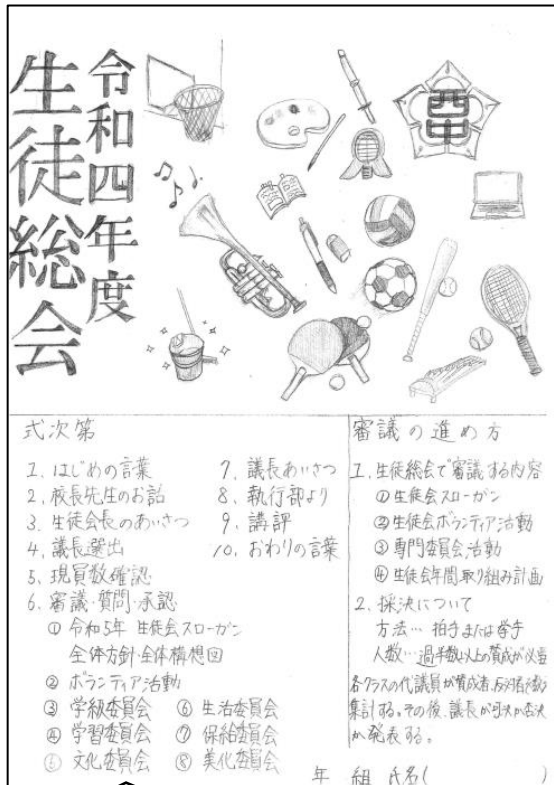 令和四年度
生徒総会
西中
式次第
1. はじめの言葉
2. 校長先生のお話
3. 生徒会長のあいさつ
4. 議長選出
5. 現員数確認
6. 審議・質問・承認
① 令和5年 生徒会スローガン
全体方針・全体構想図
② ボランティア活動
③ 学級委員会
④ 学習委員会
⑤ 文化委員会
⑥ 生活委員会
⑦ 保給委員会
⑧ 美化委員会
7. 議長あいさつ
8. 執行部より
9. 講評
10. おわりの言葉
審議の進め方
1. 生徒総会で審議する内容
① 生徒会スローガン
② 生徒会ボランティア活動
③ 専門委員会活動
④ 生徒会年間取り組み計画
2. 採決について
方法… 拍手または挙手
人数… 過半数以上の賛成が必要
各クラスの代議員が賛成者、反対者を数え
集計する。その後、議長が可決か否決
か発表する。
年 組 氏名( )